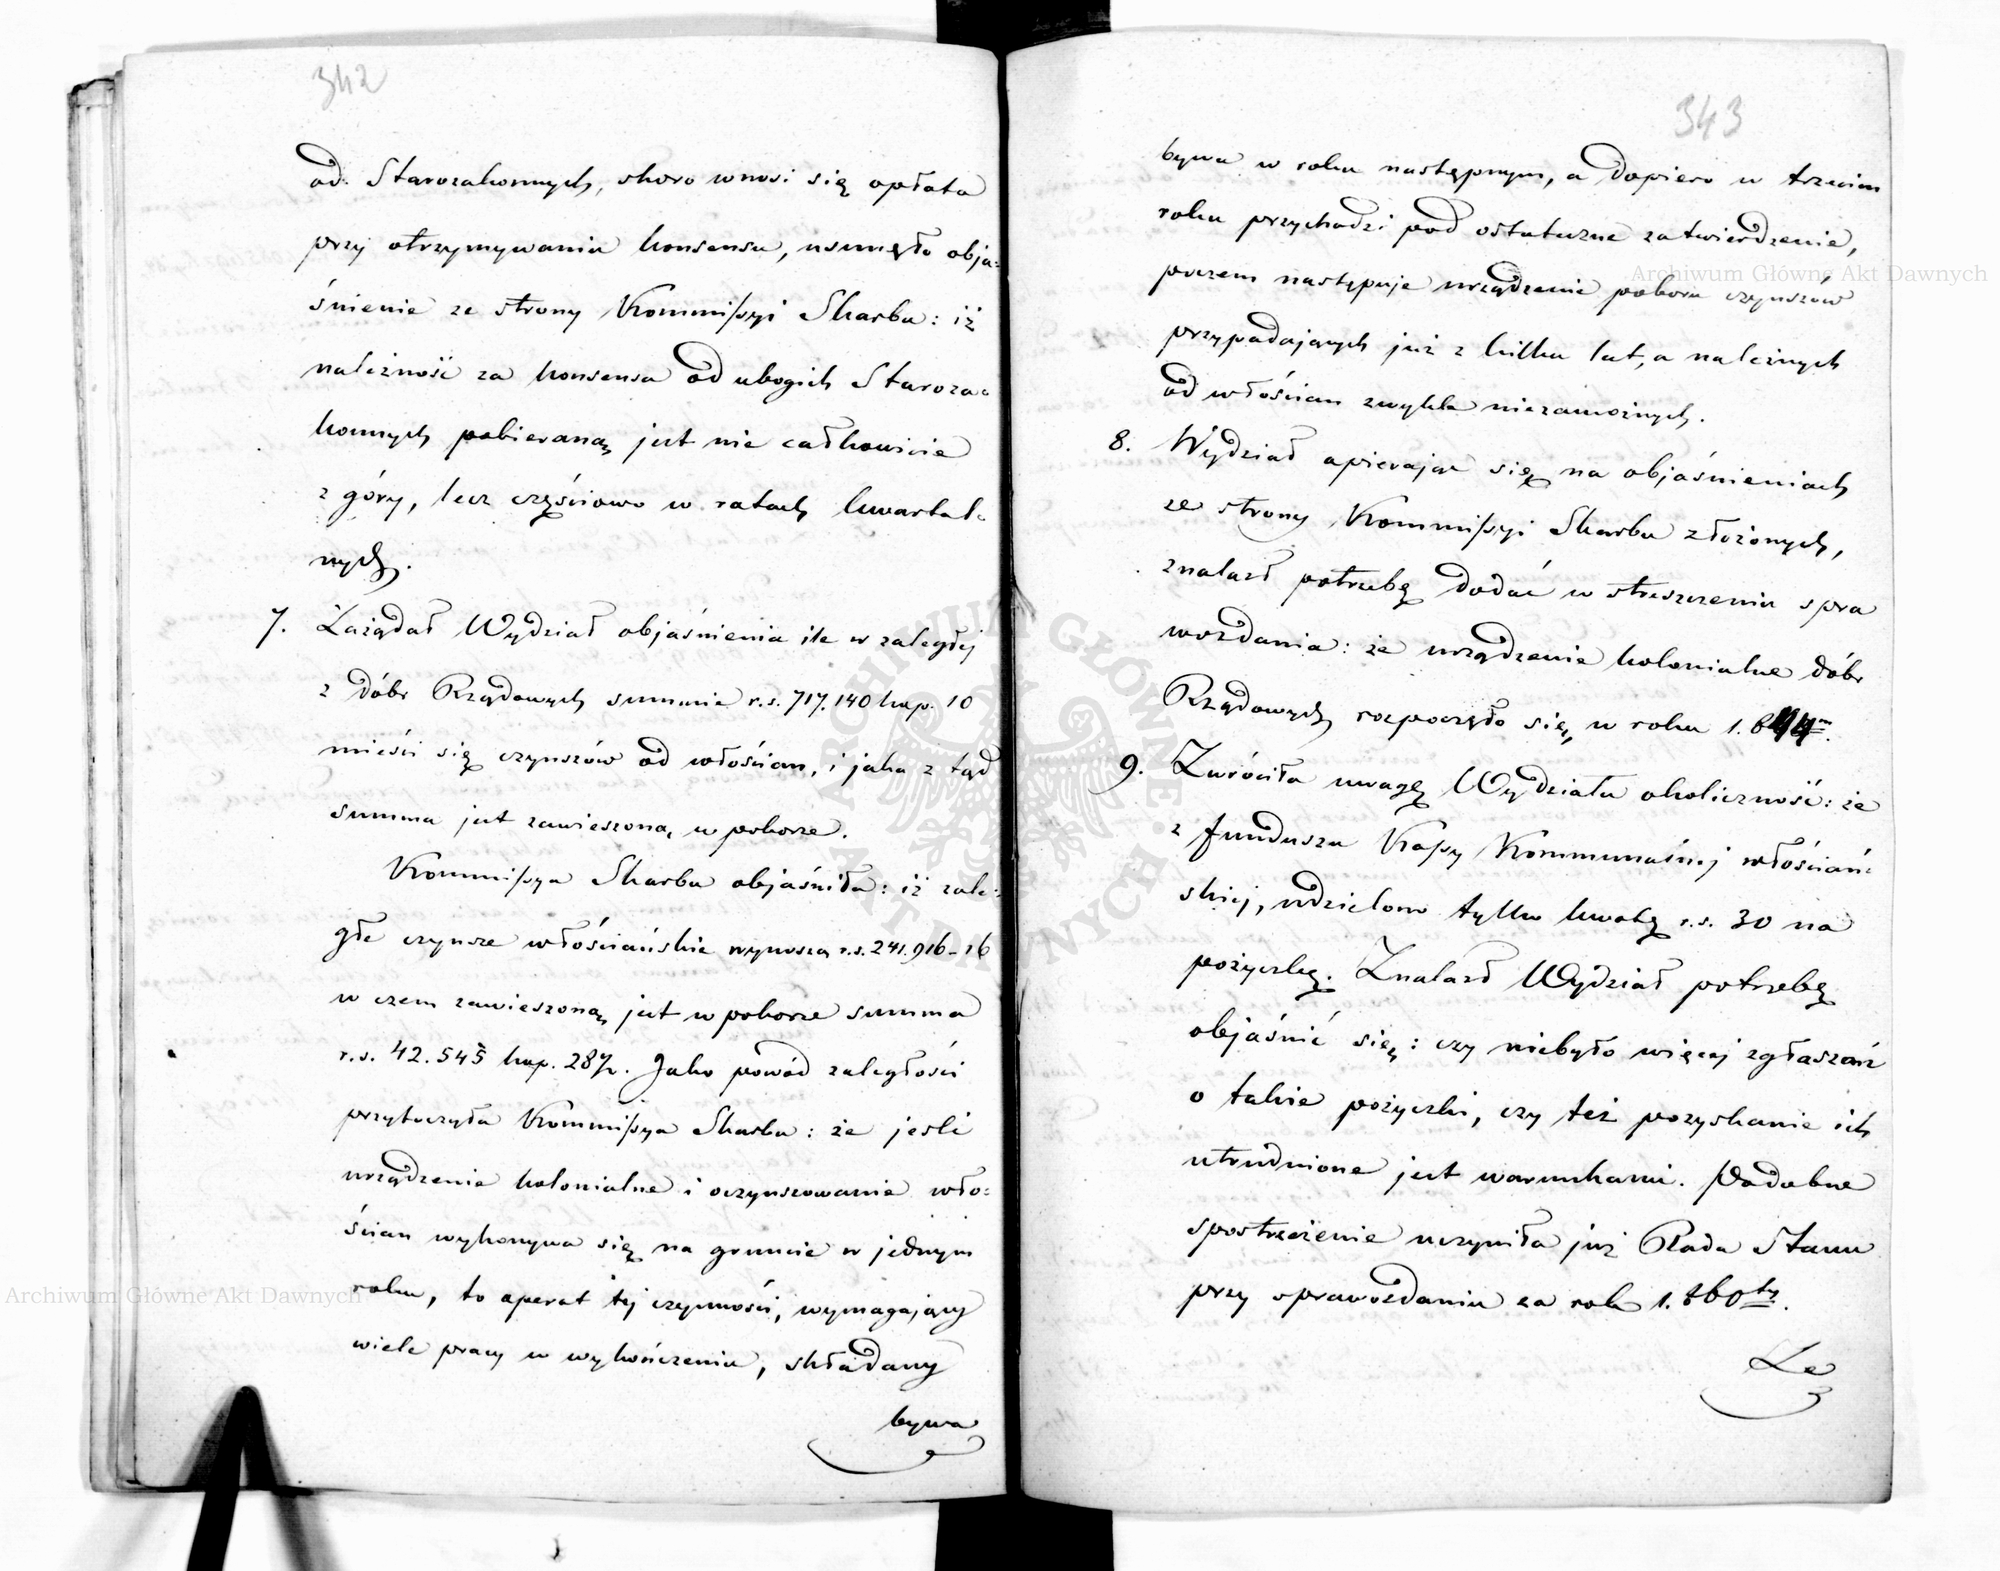 342
od Starozakonnych, skoro wnosi się opłata
przy otrzymywaniu konsensu, usunęło obja=
śnienie ze strony Kommissyi Skarbu: iż
należność za konsensa od ubogich Staroza=
konnych pobieraną jest nie całkowicie
z góry, lecz częściowo w ratach kwartal=
nych.
7. Zażądał Wydział objaśnienia ile w zaległej
z dóbr Rządowych summie r.s. 717.140 kop. 10
mieści się czynszów od włościan, i jaka z tąd
summa jest zawieszoną w poborze.
Kommissya Skarbu objaśniła: iż zale=
głe czynsze włościańskie wynoszą r.s. 241.916-16
w czem zawieszoną jest w poborze summa
r.s. 42.545 kop. 28½. Jako powód zaległości
przytoczyła Kommissya Skarbu: że jeśli
urządzenie kolonialne i oczynszowanie wło=
ścian wykonywa się na gruncie w jednym
roku, to operat tej czynności, wymagający
wiele pracy w wykończeniu, składany
bywa
343
bywa w roku następnym, a dopiero w trzecim
roku przychodzi pod ostateczne zatwierdzenie,
poczem następuje urządzenie poboru czynszów
przypadających już z kilku lat, a należnych
od włościan zwykle niezamożnych.
8. Wydział opierając się na objaśnieniach
ze strony Kommissyi Skarbu złożonych,
znalazł potrzebę dodać w streszczeniu spra
wozdania: że urządzenie kolonialne dóbr
Rządowych rozpoczęło się w roku 1.844m.
9. Zwróciła uwagę Wydziału okoliczność: że
z funduszu Kassy Kommunalnej włościań=
skiej, udzielono tylko kwotę r.s. 30 na
pożyczkę. Znalazł Wydział potrzebę
objaśnić się: czy niebyło więcej zgłaszań
o takie pożyczki, czy też pozyskanie ich
utrudnione jest warunkami. Podobne
spostrzeżenie uczyniła już Rada Stanu
przy sprawozdaniu za rok 1.860ty.
Ze
Archiwum Główne Akt Dawnych
Archiwum Główne Akt Dawnych
ARCHIWUM GŁÓWNE AKT DAWNYCH